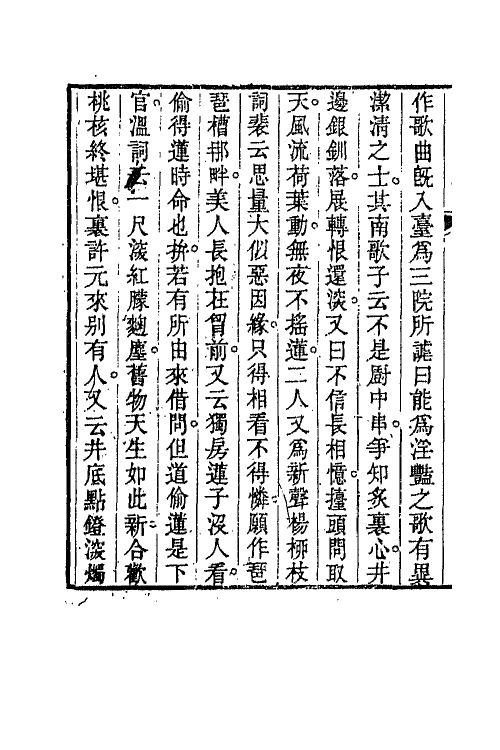 作歌曲旣入臺爲三院所謔曰能爲淫豔之歌有異
潔清之士其南歌子云不是厨中串爭知炙裏心井
邊銀釧落展轉恨還淡又曰不信長相憶擡頭問取
天風流荷葉動無夜不搖蓮二人又爲新聲楊栁枝
詞裴云思量大似惡因緣只得相看不得憐願作琶
琶槽那畔美人長抱在胷前又云獨房蓮子沒人看
偷得蓮時命也拚若有所由來借問但道偷蓮是下
官溫詞云一尺淡紅朦麴塵舊物天生如此新合歡
桃核終堪恨裏許元來别有人又云井底點鐙淡燭